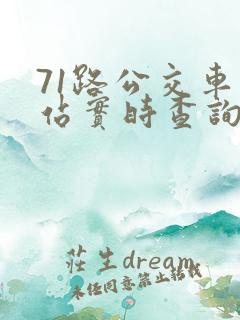 71路公交車
佔實時查詢
莊生dream
未经同意禁止转载